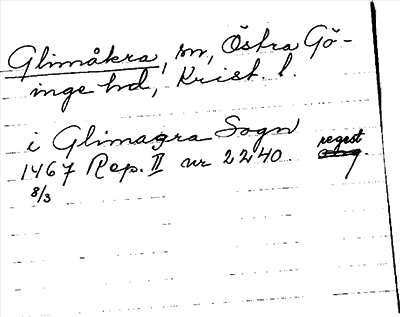 Glimåkra, sn, Östra Gö-
inge hd, Krist. l.
i Glimagra Sogn
1467 Rep. II nr 2240 regest
8/3